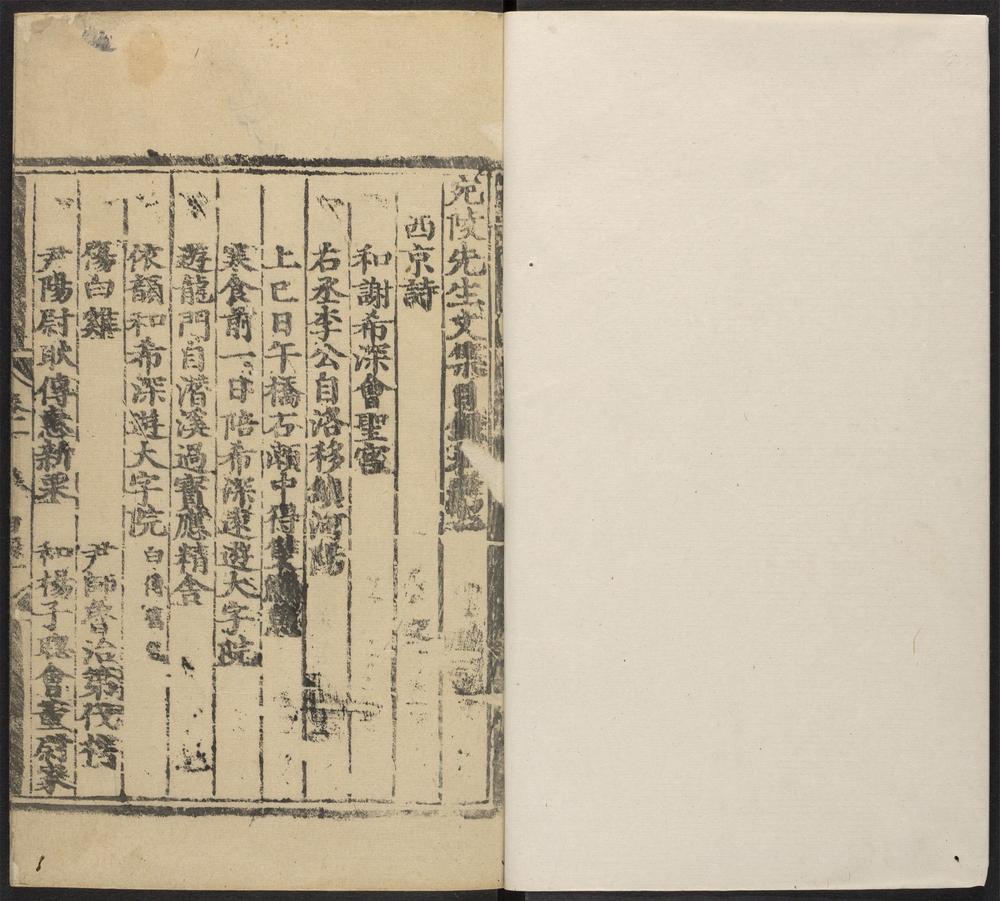 宛陵先生文集目
西京詩
和謝希深會聖宮
右丞李公自洛移鎮河陽
上巳日午橋石瀨中得雙鱖魚
寒食前一日陪希深遠遊大字院
遊龍門自潛溪過寶應精舍
依韻和希深遊大字院 白傅舊
傷白雞 尹師魯治第伐樗
尹陽尉耿傳惠新栗 和楊子聰會董尉家